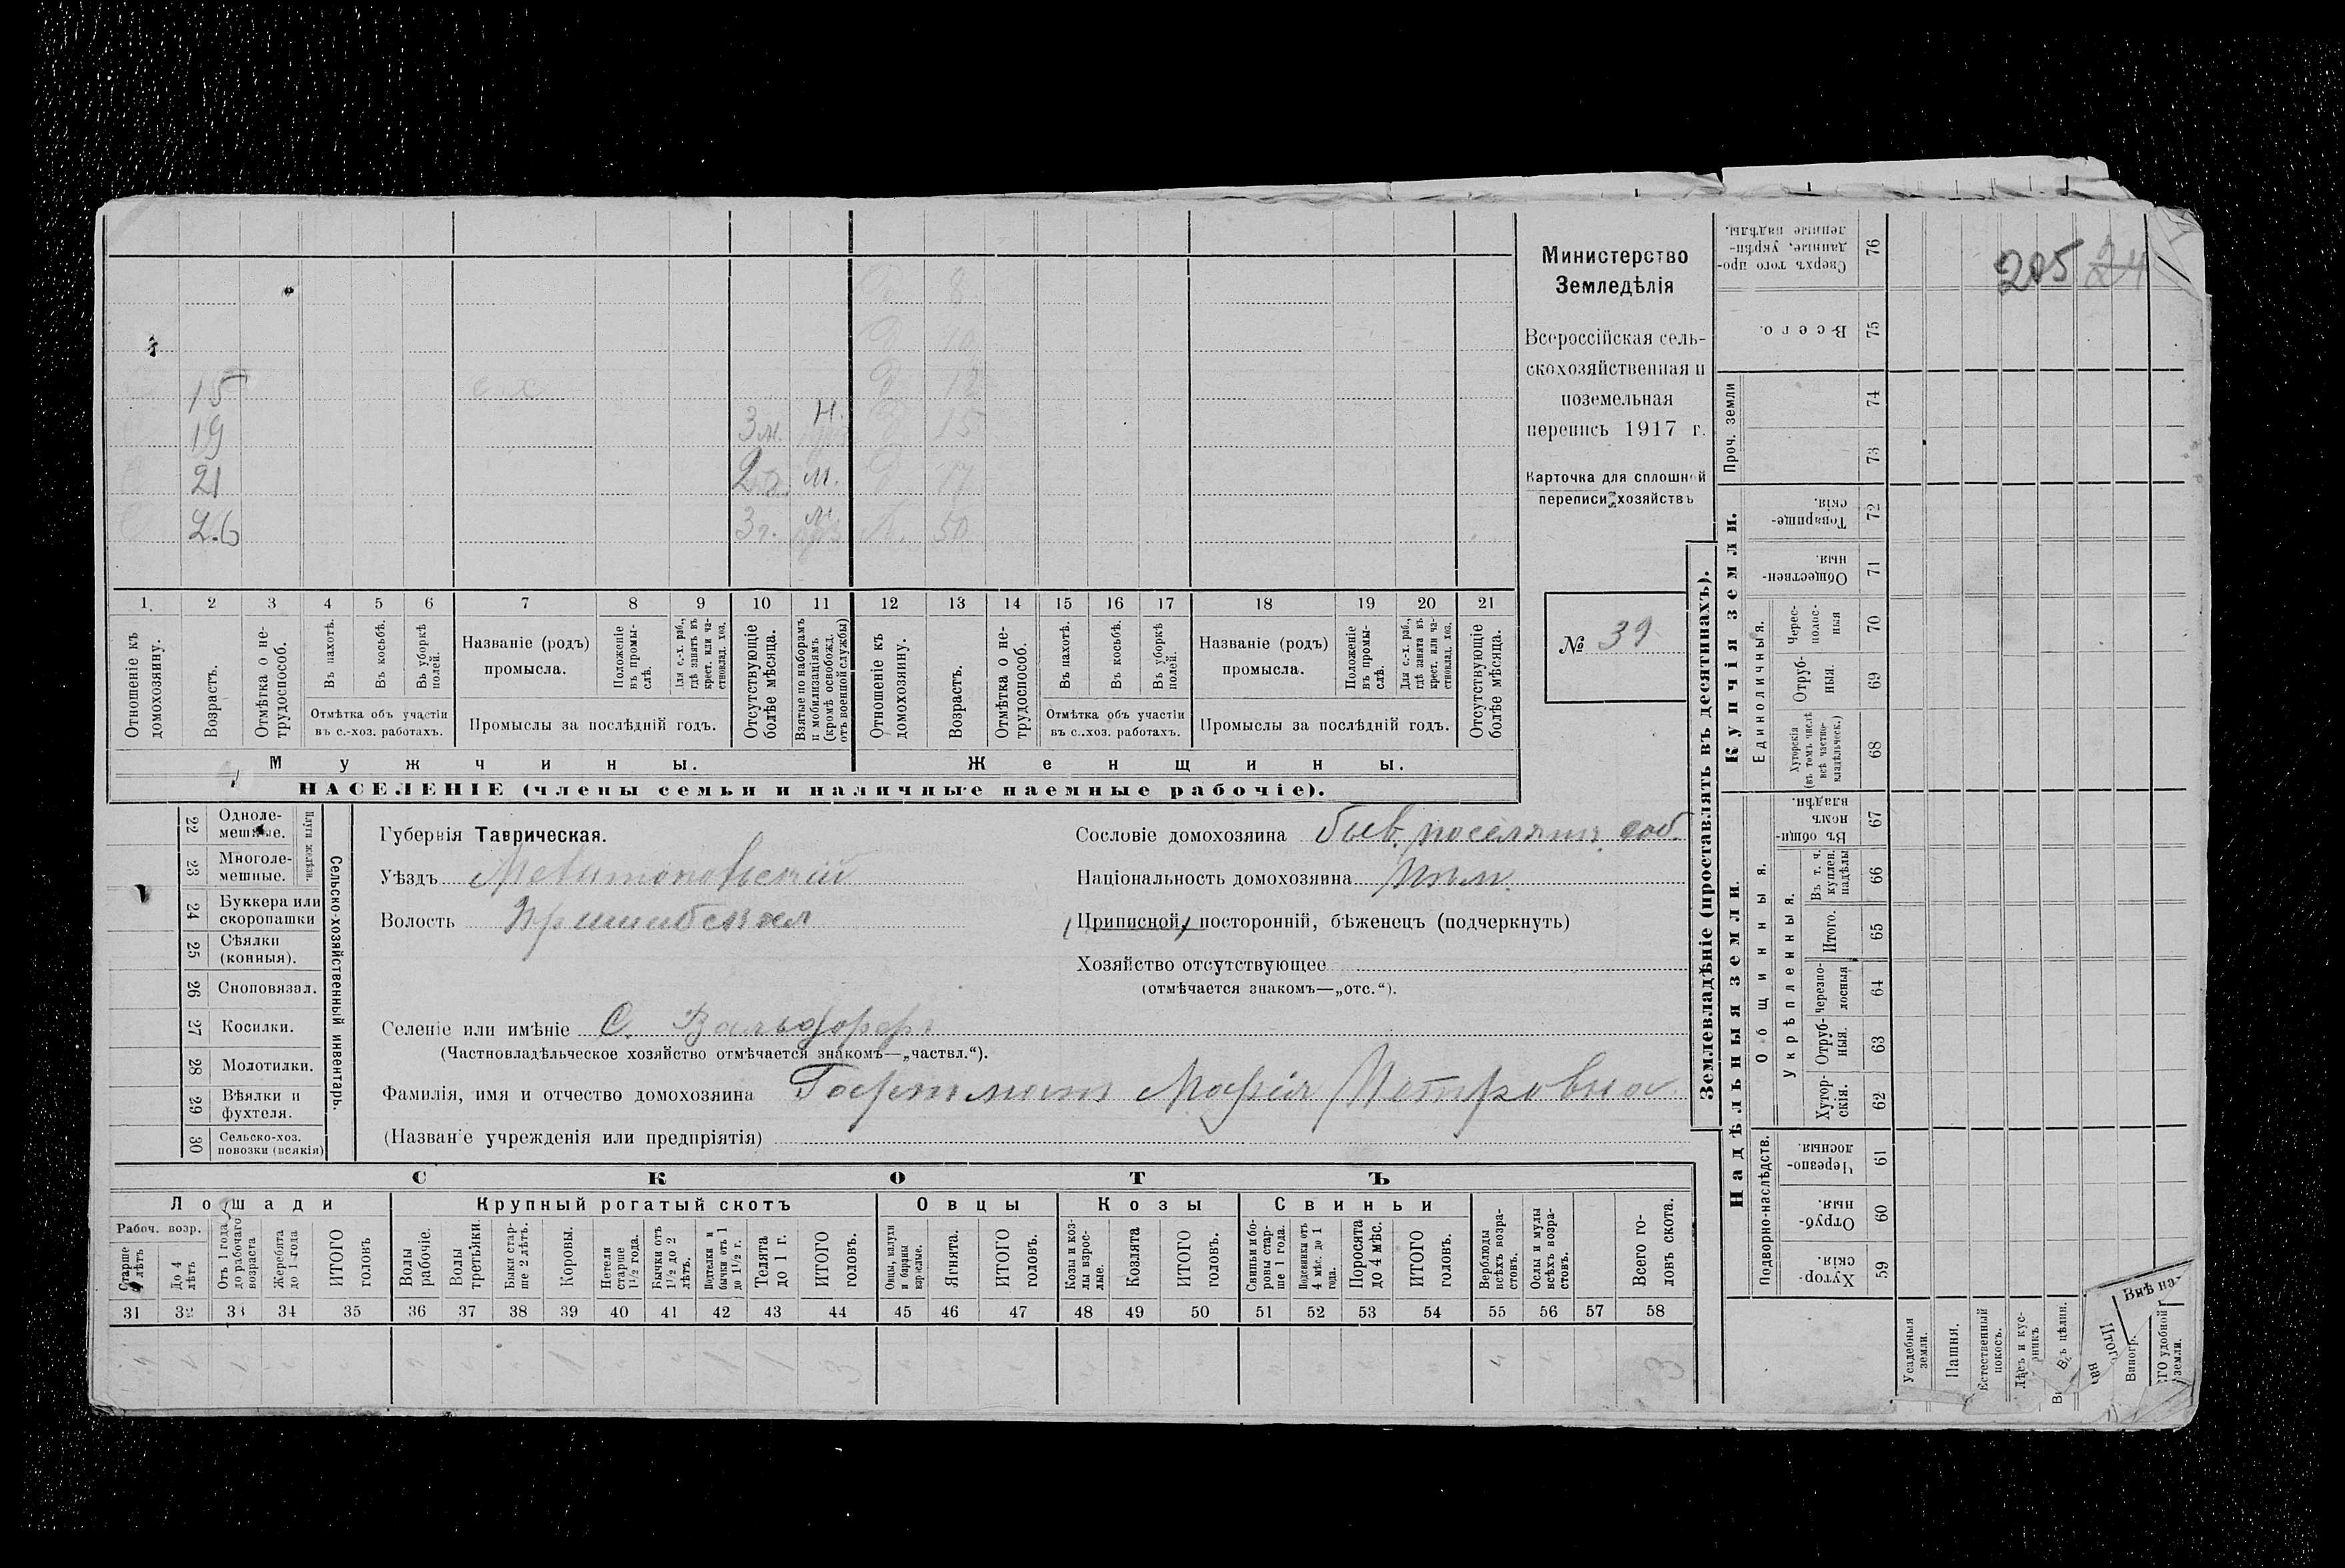 205 24
Министерство
Земледѣлія
Всероссійская сель-
скохозяйственная и
поземельная
перепись 1917 г.
Карточка для сплошной
переписи хозяйствъ
№ 39
Д 8
Д 10
15 с х Д 12
19 3 м. н. Д 15
21 2 г. м. Д 17
26 3 г. м. 50
1. 2 3 4 5 6 7 8 9 10 11 12 13 14 15 16 17 18 19 20 21
Отношеніе къ домохозяину.
Возрастъ.
Отмѣтка о не-трудоспособ.
Въ пахотѣ.
Въ косьбѣ.
Въ уборкѣ полей.
Отмѣтка объ участіи
въ с.-хоз. работахъ.
Названіе (родъ)
промысла.
Положеніе въ промы-слѣ.
Для с.-х. раб., гдѣ занятъ въ крест. или ча-стновлад. хоз.
Промыслы за послѣдній годъ.
Отсутствующіе болѣе мѣсяца.
Взятые по наборамъ и мобилизаціямъ (кромѣ освобожд. отъ военной службы)
Отношеніе къ домохозяину.
Возрастъ.
Отмѣтка о не-трудоспособ.
Въ пахотѣ.
Въ косьбѣ.
Въ уборкѣ полей.
Отмѣтка объ участіи
въ с.-хоз. работахъ.
Названіе (родъ)
промысла.
Положеніе въ промы-слѣ.
Для с.-х. раб., гдѣ занята въ крест. или ча-стновлад. хоз.
Промыслы за послѣдній годъ.
Отсутствующіе болѣе мѣсяца.
Мужчины. Женщины.
НАСЕЛЕНІЕ (члены семьи и наличные наемные рабочіе).
Сельско-хозяйственный инвентарь.
Плуги желѣзн.
22 Одноле-мешные.
23 Многоле-мешные.
24 Буккера или скоропашки
25 Сѣялки (конныя).
26 Сноповязал.
27 Косилки.
28 Молотилки.
29 Вѣялки и фухтеля.
30 Сельско-хоз. повозки (всякія)
Губернія Таврическая.
Уѣздъ Мелитопольскій
Волость Пришибская
Сословіе домохозяина быв. поселянин. соб.
Національность домохозяина Нѣм.
Приписной, посторонній, бѣженецъ (подчеркнуть)
Хозяйство отсутствующее
(отмѣчается знакомъ—„отс.“).
Селеніе или имѣніе С. Вальдорфъ
(Частновладѣльческое хозяйство отмѣчается знакомъ—„частвл.“).
Фамилія, имя и отчество домохозяина Гартман Марія Петровна
(Названіе учрежденія или предпріятія)
СКОТЪ
Лошади Крупный рогатый скотъ Овцы Козы Свиньи
Рабоч. возр.
Старше 4 лѣтъ
До 4 лѣтъ
Отъ 1 года до рабочаго возраста
Жеребята до 1 года
ИТОГО головъ
Волы рабочіе.
Волы третьяки.
Быки стар-ше 2 лѣтъ.
Коровы.
Нетели старше 1½ года.
Бычки отъ 1½ до 2 лѣтъ.
Подтелки и бычки отъ 1 до 1½ г.
Телята до 1 г.
ИТОГО головъ.
Овцы, валухи и бараны взрослые.
Ягнята.
ИТОГО головъ.
Козы и коз-лы взрос-лые.
Козлята
ИТОГО головъ.
Свиньи и бо-ровы стар-ше 1 года.
Подсвинки отъ 4 мѣс. до 1 года.
Поросята до 4 мѣс.
ИТОГО головъ.
Верблюды всѣхъ возра-стовъ.
Ослы и мулы всѣхъ возра-стовъ.
Всего го-ловъ скота.
31 32 33 34 35 36 37 38 39 40 41 42 43 44 45 46 47 48 49 50 51 52 53 54 55 56 57 58
1 1 1 3 3
Землевладѣніе (проставлять въ десятинахъ).
Купчія земли.
Надѣльныя земли.
Сверхъ того про-данные, укрѣп-ленные надѣлы. 76
Всего. 75
Проч. земли 74
73
Товарище-скія. 72
Обществен-ныя. 71
Единоличныя.
Черес-полос-ныя 70
Отруб-ныя. 69
Хуторскія (въ томъ числѣ всѣ частно-владѣльческ.) 68
Общинныя.
Въ общин-номъ владѣн. 67
Укрѣпленныя.
Въ т. ч. куплен. надѣлы 66
Итого. 65
Черезпо-лосныя 64
Отруб-ныя. 63
Хутор-скія. 62
Подворно-наслѣдств.
Черезпо-лосныя. 61
Отруб-ныя. 60
Хутор-скія. 59
Усадебныя земли.
Пашня.
Естественный покосъ.